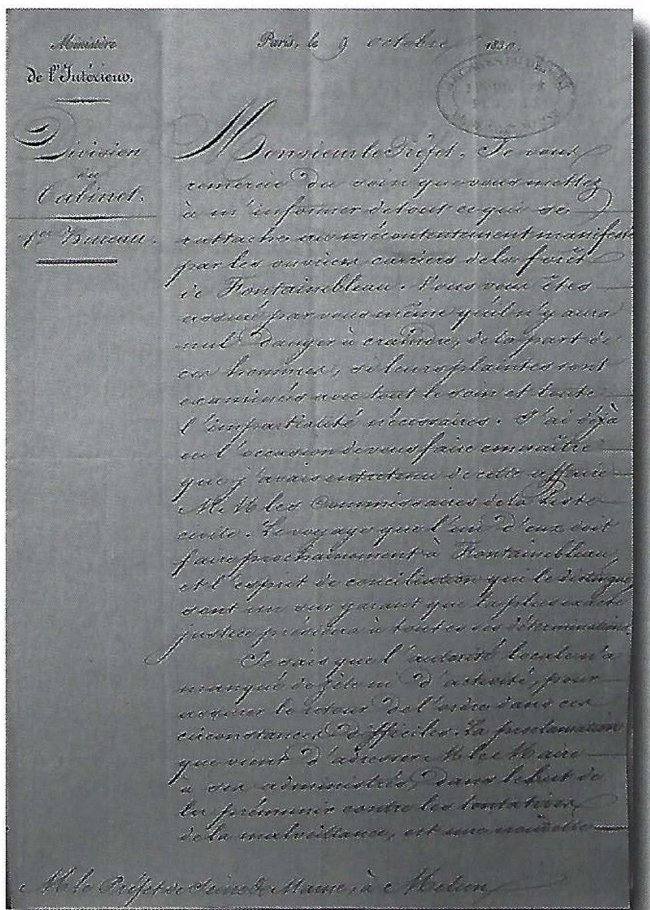 Ministère
de l'Intérieur.
Division
du
Cabinet.
1er Bureau.
Paris, le 9 octobre 1830.
ARCHIVES
Monsieur le Préfet. Je vous
remercie du soin que vous mettez
à m'informer de tout ce qui se
rattache au mécontentement manifesté
par les ouvriers carriers de la forêt
de Fontainebleau. Vous vous êtes
assuré par vous même qu'il n'y aura
nul danger à craindre, de la part de
ces hommes, si leurs plaintes sont
examinées avec tout le soin et toute
l'impartialité nécessaires. J'ai déjà
eu l'occasion de vous faire connaître
que j'avais entretenu de cette affaire
MM les Commissaires de la Liste
civile. Le voyage que l'un d'eux doit
faire prochainement à Fontainebleau
et l'esprit de conciliation qui le distingue
sont un sur garant que la plus exacte
justice présidera à toutes ses déterminations.
Je sais que l'autorité locale n'a
manqué de zèle ni d'activité, pour
assurer le retour de l'ordre dans ces
circonstances difficiles. La proclamation
que vient d'adresser M le Maire
à ses administrés, dans le but de
les prémunir contre les tentatives
de la malveillance, est une nouvelle
M le Préfet de Seine & Marne, à Melun